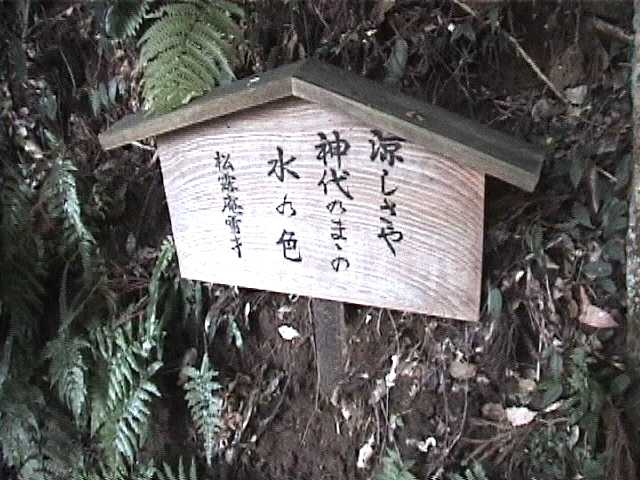 涼しさや
神代のまゝの
水の色
松露庵雪才